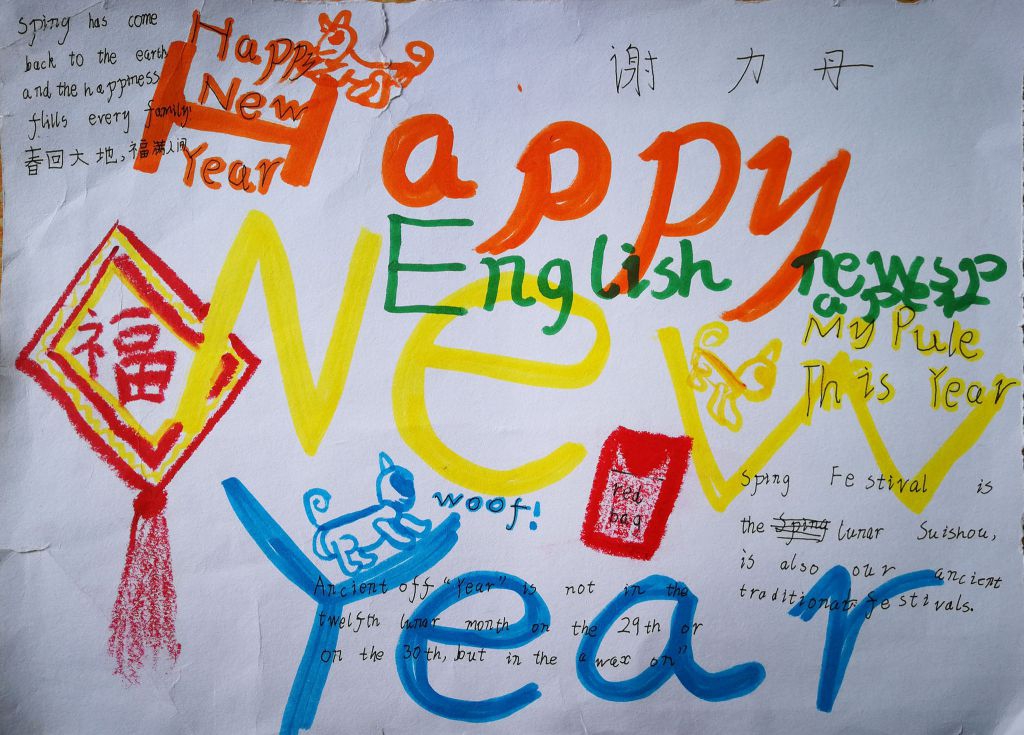 Sping has come
back to the earth
and the happiness
flills every family.
春回大地,福满人间
Happy
New
Year
谢 力
Happy
English newsp
aper
New
福
My Pule
This Year
red
bag
woof!
Sping Festival is
the Sping lunar Suishou,
is also our ancient
traditional festivals.
Year
Ancient off "Year" is not in the
twelfth lunar month on the 29th or
on the 30th, but in the "wax on"